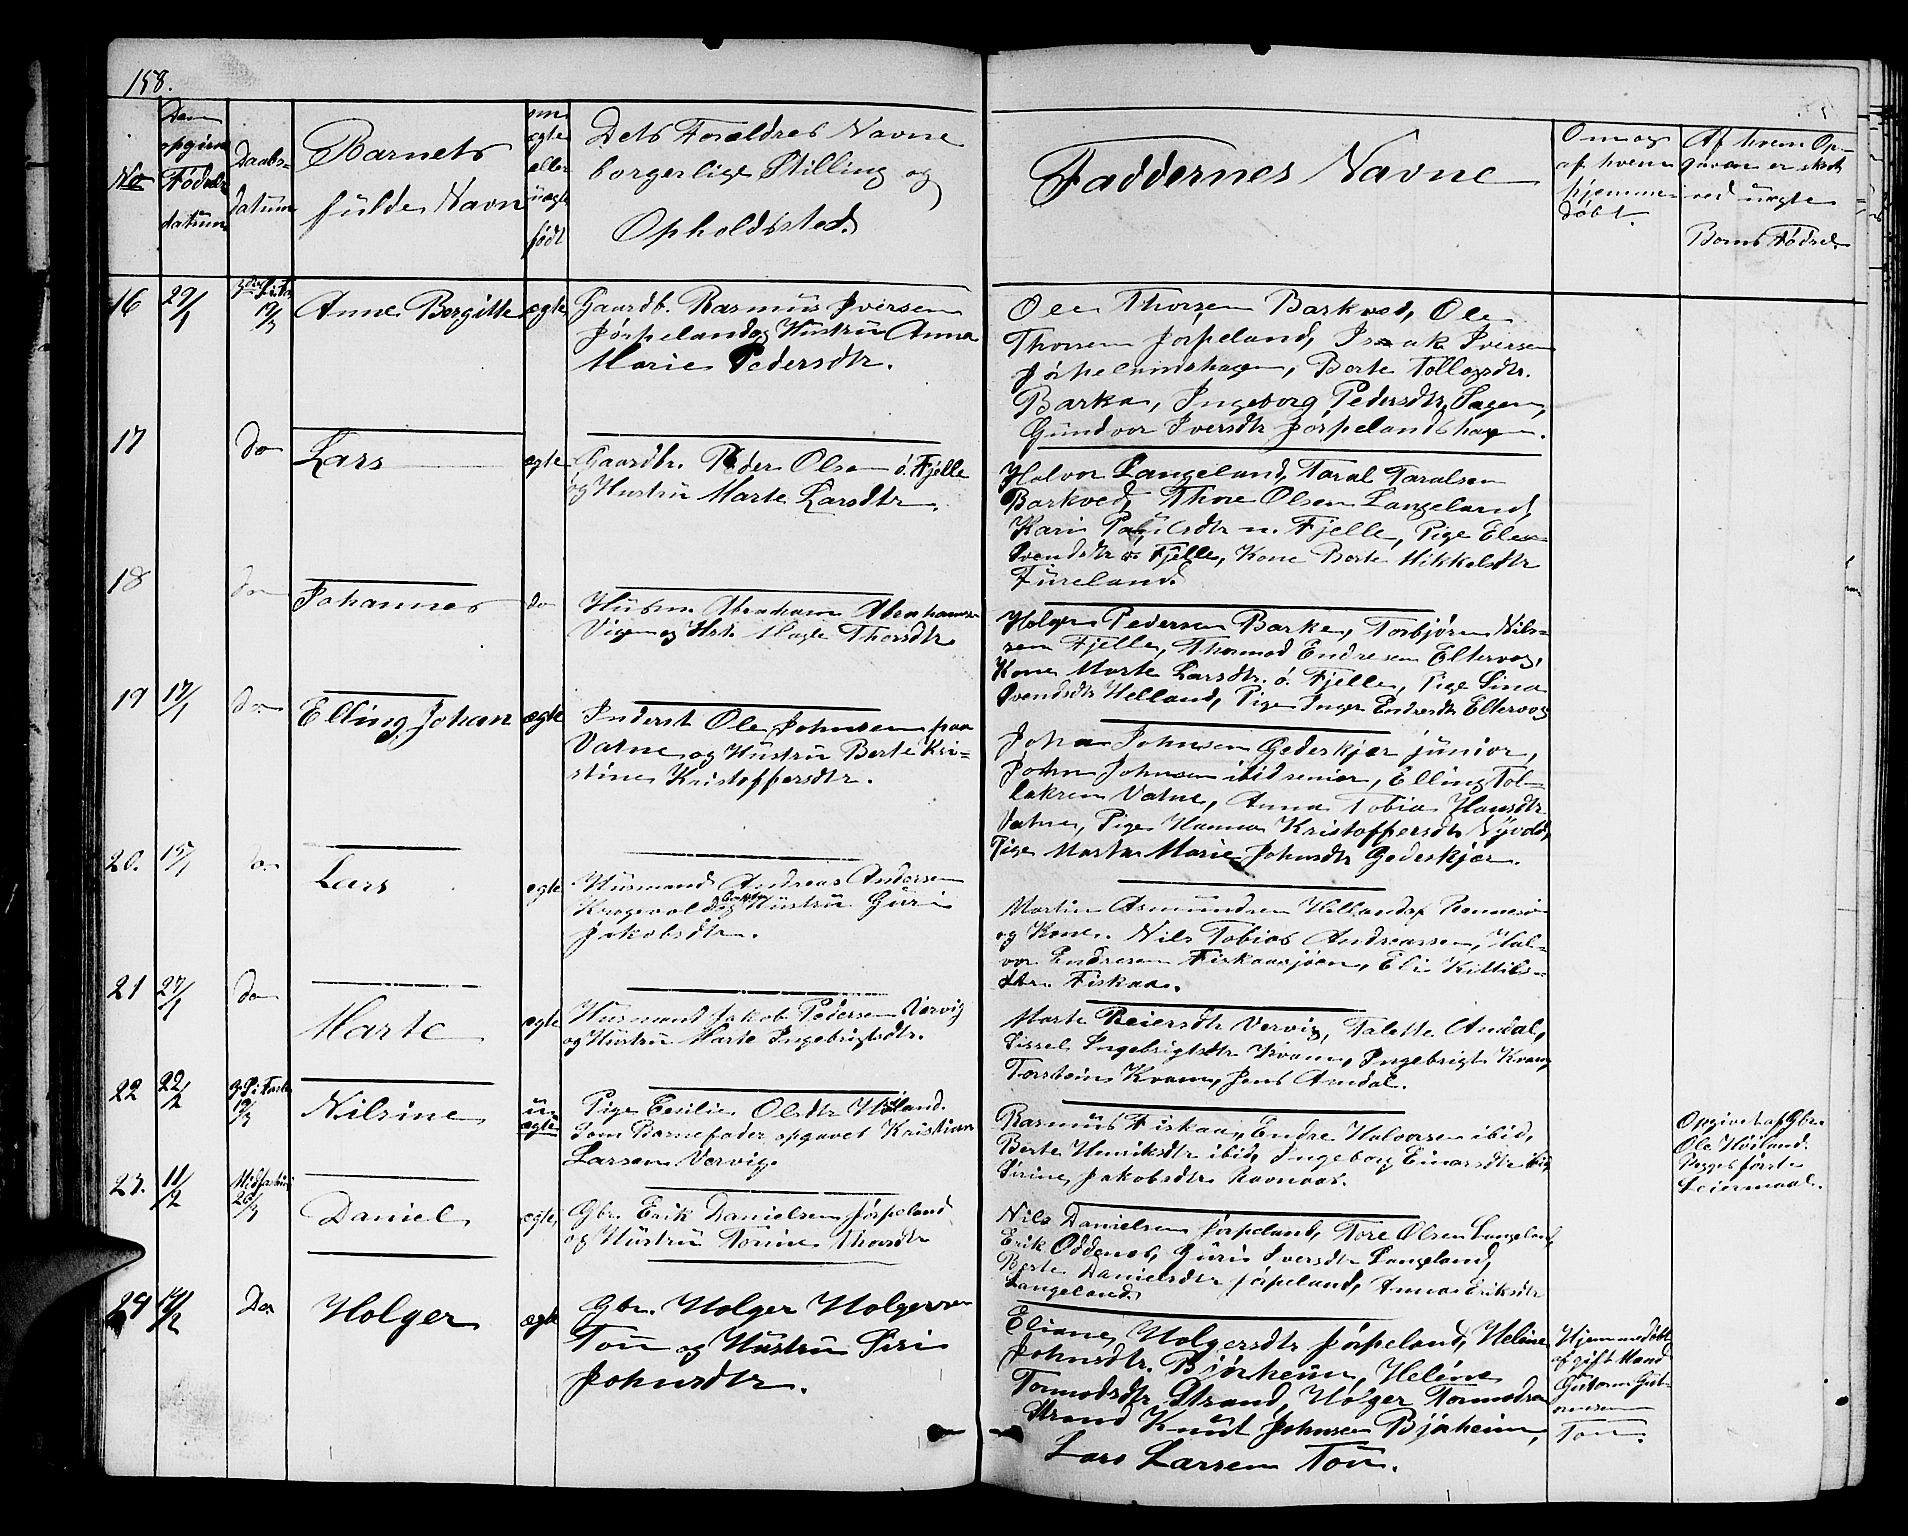 158.
No
Den
opgivne
Fødsels
datum
Daabs-
datum
Barnets
fulde Navn
om
ægte
eller
uægte
født
Dets Forældres Navne
borgerlige Stilling og
Opholdssted.
Faddernes Navne
Om og
af hvem
hjemme
døbt.
Af hvem Op-
gaven er skeet
ved uægte
Børns Fødsel.
16 29/1 19/3 Anne Bergitte ægte
Gaardb. Rasmus Iversen
Jørpeland og Hustru Anna
Marie Pedersdtr.
Ole Thorsen Barkved, Ole
Thorsen Jørpeland, Isak Iversen
Jørpelandshagen, Berte Tollagsdtr.
Barka, Ingeborg Pedersdtr. Hagen,
Gundvor Iversdtr Jørpelandshagen.
17 do Lars ægte
Gaardbr. Peder Olsen ø. Fjelle
og Hustru Marte Larsdtr.
Halvor Langeland, Taral Taralsen
Barkved, Thore Olsen Langeland,
Kari Paulsdtr n. Fjelle, Pige Elen
Svendsdtr ø Fjelle, Kone Berte Mikkelsdtr
Fureland
18 do Johannes do
Husm. Abraham Abrahamsen
Vigen og Hst. Magle Thorsdtr
Holger Pedersen Barke, Torbjørn Nils-
sen Fjelle, Thormod Endresen Eltervaag,
Kone Marte Larsdtr. ø. Fjelle, Pige Sina
Svendsdtr Helland, Pige Inger Endresdtr Eltervag
19 17/1 do Elling Johan ægte
Inderst Ole Johnsen paa
Vatne og Hustru Berte Kri-
stine Kristoffersdtr.
John Johnsen Gedeskjær junior,
John Johnsen ibid senior, Elling Tol-
laksen Vatne, Anna Tobia Hansdtr
Vatne, Pige Hanna Kristoffersdtr Nyvold,
Pige Marta Marie Johnsdtr Gedeskjær.
20. 15/1 do Lars ægte
Husmand Andreas Andersen
Krogevold og Hustru Guri
Jakobsdtr.
Martin Asmundsen Helland Rennesø
og Kone. Nils Tobias Andreassen, Hal-
vor Endresen Fiskaasjøen, Eli Kittils-
dtr Fiskaa.
21 27/1 do Marte ægte
Husmand Jakob Pedersen Vervig
og Hustru Marte Ingebrigtsdtr.
Marte Reiersdtr Vervig, Talette Amdal,
Sissel Ingebrigtsdtr Kvam, Ingebrigt Kvam,
Torstein Kvam, Jens Amdal.
22 22/2 3 S. i Faste 19/3 Nilsine u-
ægte
Pige Cecilie Olsdtr Høiland.
Som Barnefader opgivet Kristian
Larsen Vervig.
Rasmus Fiskaa, Endre Halvorsen ibid,
Berte Henriksdtr ibid, Ingeborg Einarsdtr ibid,
Sirine Jakobsdtr Ravnaas.
Opgivet af Gbr.
Ole Høiland.
Begges første
Leiermaal.
23. 11/2 Midfaste 26/3 Daniel ægte
Gbr. Erik Danielsen Jørpeland
og Hustru Tonine Thorsdtr
Nils Danielsen Jørpeland, Tore Olsen Langeland,
Erik Oddenes, Guri Iversdtr Langeland,
Berte Danielsdtr Jørpeland, Anna Eriksdtr
Langeland.
24 14/2 Do Holger ægte
Gbr. Holger Holgersen
Tou og Hustru Siri
Johnsdtr.
Eliane Holgersdtr Jørpeland, Heline
Johnsdtr. Bjørheim, Heléne
Tormodsdtr. Strand, Holger Tormodsen
Strand Knud Johnsen Bjørheim,
Lars Larsen Tou.
Hjemmedøbt
af gift Mand
Guttorm Gut-
ormsen
Tou.